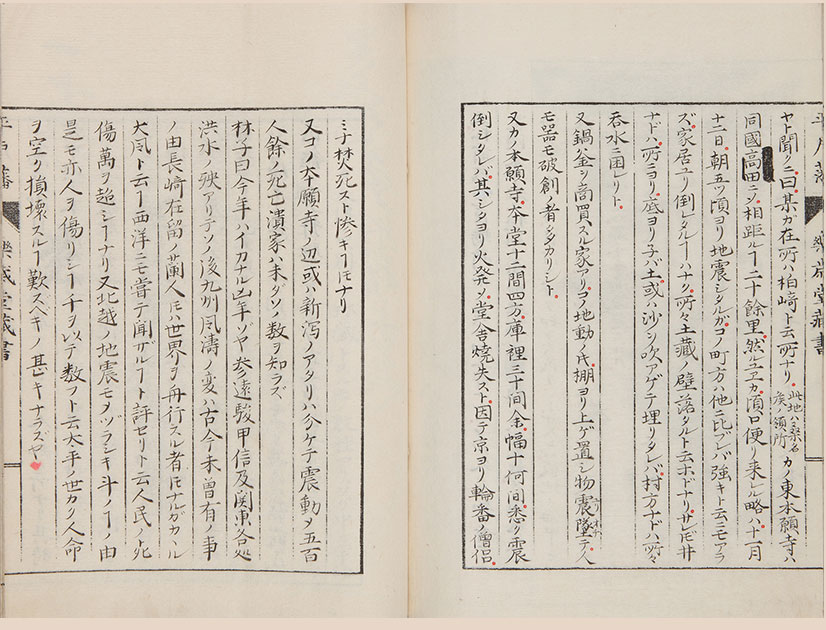 平戸藩 樂歳堂藏書
ヤト聞クニ曰某カ在所ハ柏崎ト云所ナリ 此地ハ桑名侯ノ領所 カノ東本願寺ハ
同國高田ニメ相距ルヿ二十餘里然ルユヱカ頃口便リ来ル略ハ十一月
十二日朝五ツ頃ヨリ地震シタルガコノ町方ハ他ニ比ブレバ強キト云ニモアラ
ズ家居ユリ倒レタルヿハナク所々土藏ノ壁落タルト云ホドナリサレ𪜈井
ナドハ所ニヨリ底ヨリ子バ土或ハ沙ヲ吹アゲテ埋リタレバ村方ナドハ所々
吞水ニ困レリト
又鍋釜ヲ商買スル家アリコノ地動ノ時棚ヨリ上ゲ置シ物震墜テ人
モ器モ破創ノ者ヲタカリシト
又カノ本願寺本堂十二間四方庫裡三十間余幅十何間悉ク震
倒シタレバ其シタヨリ火発メ堂舍焼失スト因テ京ヨリ輪番ノ僧侶
ミナ焚死スト惨ヅキヿ𪜈ナリ
又コノ本願寺ノ辺或ハ新泻ノアタリハ分ケテ震動メ五百
人餘ノ死亡潰家ハ未ダソノ数ヲ知ラズ
林子曰今年ハイカナル凶年ソヤ参遠駿甲信及関東各処
洪水ノ殃アリテソノ後九州風濤ノ変ハ古今未曾有ノ事
ノ由長崎在留ノ蘭人𪜈ハ世界ヲ舟行スル者𪜈ナルガカヽル
大風ト云ヿ西洋ニモ嘗テ聞ザルヿト評セリト云人民ノ死
傷萬ヲ超シヿナリ又北越ノ地震モメヅラシキ斗ノヿノ由
是モ亦人ヲ傷リシヿ千ヲ以テ数フト云太平ノ世カク人命
ヲ空ク損壊スルヿ歎スヘキノ甚キナラズヤ
平戸藩 樂歳堂藏書